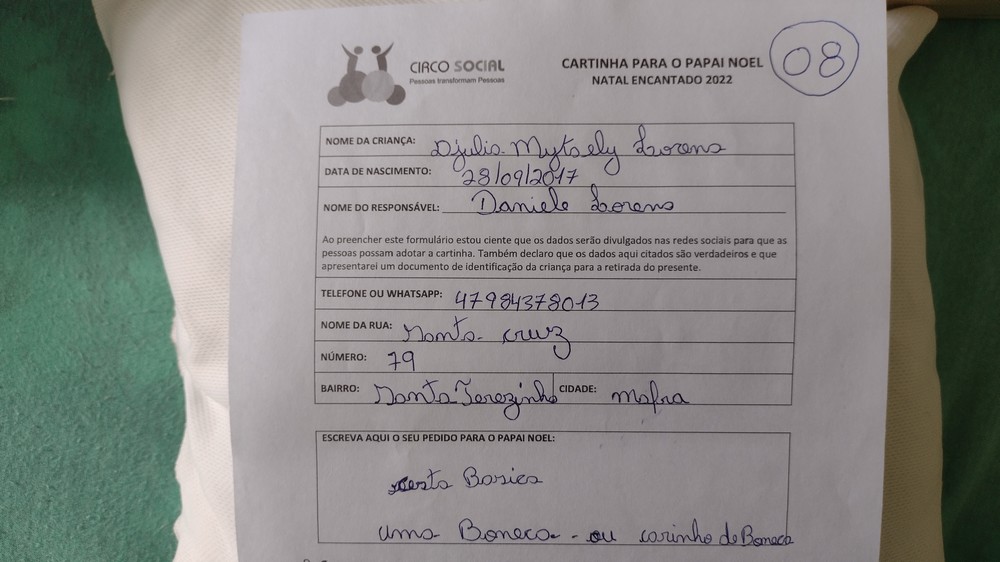 CIRCO SOCIAL
Pessoas transformam Pessoas
CARTINHA PARA O PAPAI NOEL
NATAL ENCANTADO 2022
08
NOME DA CRIANÇA: Djulia Mytsely Lorens
DATA DE NASCIMENTO: 28/09/2017
NOME DO RESPONSÁVEL: Daniele Lorens
Ao preencher este formulário estou ciente que os dados serão divulgados nas redes sociais para que as
pessoas possam adotar a cartinha. Também declaro que os dados aqui citados são verdadeiros e que
apresentarei um documento de identificação da criança para a retirada do presente.
TELEFONE OU WHATSAPP: 47984378013
NOME DA RUA: Santa cruz
NÚMERO: 79
BAIRRO: Santa Terezinha CIDADE: Mafra
ESCREVA AQUI O SEU PEDIDO PARA O PAPAI NOEL:
cesta Basica
uma Boneca - ou carinho de Boneca